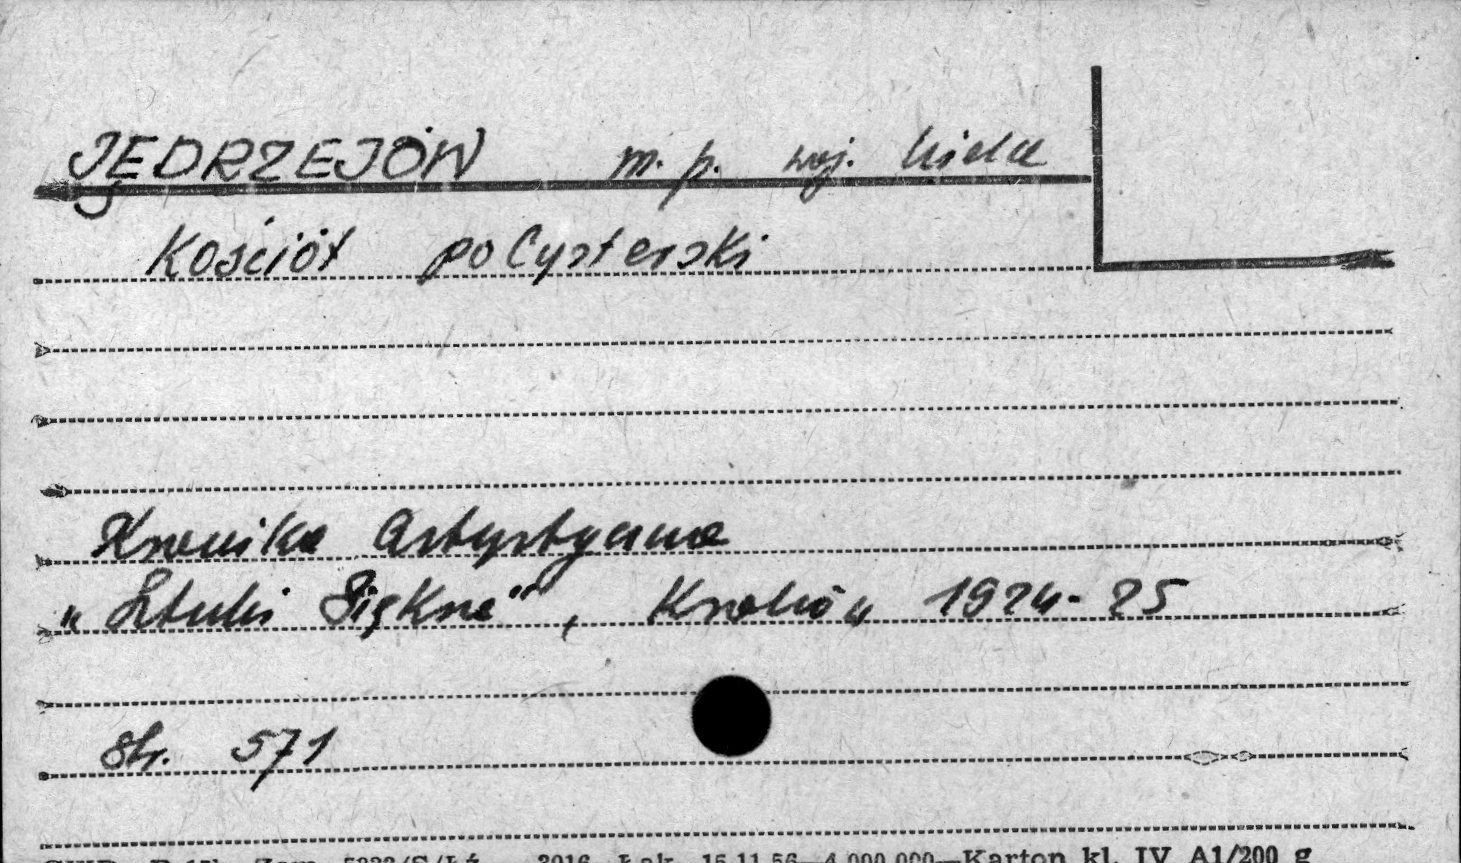 JĘDRZEJÓW m. p. woj. Kielce
Kościół poCysterski
Kronika Artystyczna
„Sztuki Piękne”, Kraków 1924-25
str. 571
Zam. 5333/S/Łź 3016 Łak. 15.11.56—4.000.000—Karton kl. IV A1/200 g